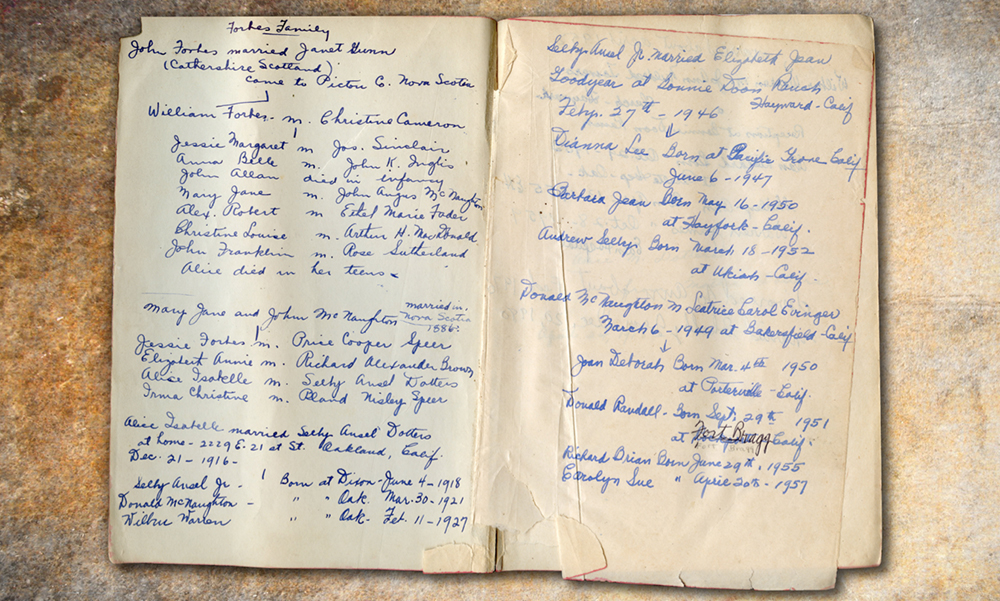 Forbes Family
John Forbes married Janet Gunn
(Cathershire Scotland)
Came to Pictou C. Nova Scotia
William Forbes - m. Christine Cameron
Jessie Margaret m Jos. Sinclair
Anna Belle m. John K. Inglis
John Allan died in infancy
Mary Jane m. John Angus McNaughton
Alex. Robert m Ethel Marie Fader
Christine Louise m. Arthur H. MacDonald
John Franklin m. Rose Sutherland
Alice died in her teens
Mary Jane and John McNaughton married in Nova Scotia 1886.
Jessie Forbes m. Price Cooper Speer
Elizabeth Annie m. Richard Alexander Brown
Alice Isabelle m. Selby Ansel Dotters
Irma Christine m. Bland Nisley Speer
Alice Isabelle married Selby Ansel Dotters
at home - 2229 E. 21 at St. Oakland, Calif.
Dec. 21 - 1916 -
Selby Ansel Jr - Born at Dixon - June 4 - 1918
Donald McNaughton - " " Oak. Mar. 30 - 1921
Wilbur Warren " " Oak - Feb. 11 - 1927
Selby Ansel Jr. married Elizabeth Jean
Goodyear at Bonnie Doon Ranch
Hayward - Calif
Feby. 27th - 1946
Dianna Lee Born at Pacific Grove Calif
June 6 - 1947
Barbara Jean Born May 16 - 1950
at Hayfork - Calif.
Andrew Selby Born March 18 - 1952
at Ukiah - Calif -
Donald McNaughton m Beatrice Carol Evinger
March 6 - 1949 at Bakersfield - Calif
Joan Deborah Born Mar. 4th 1950
at Porterville - Calif.
Donald Randall - Born Sept. 29th 1951
at Fort Bragg Calif.
Richard Brian Born June 29th, 1955
Carolyn Sue " April 20th - 1957